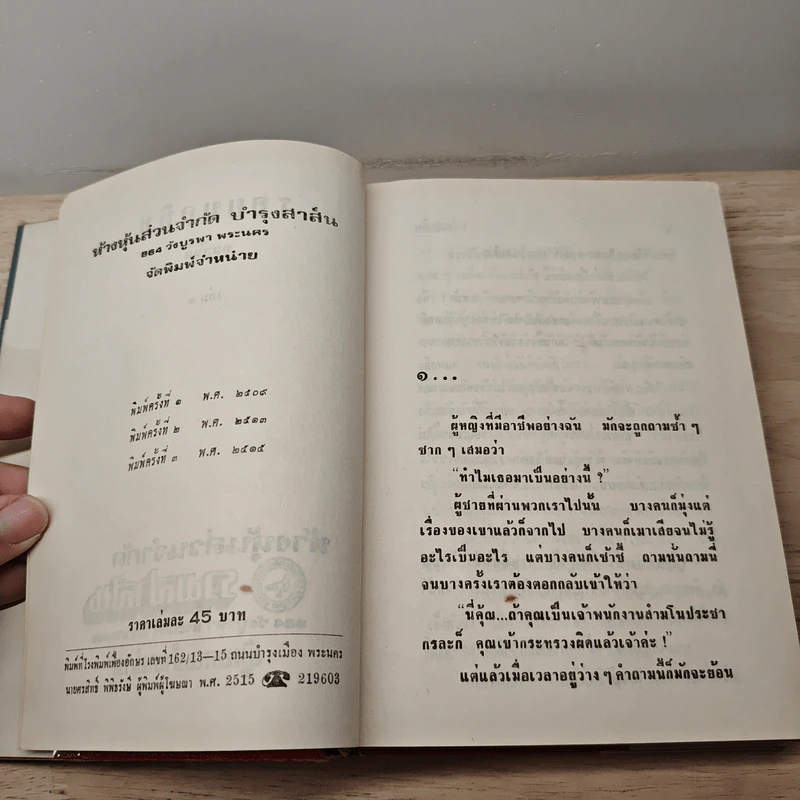 ห้างหุ้นส่วนจำกัด บำรุงสาส์น
๒๒๔ วังบูรพา พระนคร
จัดพิมพ์จำหน่าย
พิมพ์ครั้งที่ ๑ พ.ศ. ๒๕๐๙
พิมพ์ครั้งที่ ๒ พ.ศ. ๒๕๑๓
พิมพ์ครั้งที่ ๓ พ.ศ. ๒๕๑๕
ราคาเล่มละ 45 บาท
พิมพ์ที่โรงพิมพ์เฟื่องอักษร เลขที่ 162/13—15 ถนนบำรุงเมือง พระนคร
นายศรสิทธิ์ พิพิธรังษี ผู้พิมพ์ผู้โฆษณา พ.ศ. 2515 ☎ 219603
๑...
ผู้หญิงที่มีอาชีพอย่างฉัน มักจะถูกถามซ้ำ ๆ
ซาก ๆ เสมอว่า
“ทำไมเธอมาเป็นอย่างนี้ ?”
ผู้ชายที่ผ่านพวกเราไปนั้น บางคนก็มุ่งแต่
เรื่องของเขาแล้วก็จากไป บางคนก็เมาเสียจนไม่รู้
อะไรเป็นอะไร แต่บางคนก็เซ้าซี้ ถามนั่นถามนี่
จนบางครั้งเราต้องตอกกลับเข้าให้ว่า
“นี่คุ้ณ...ถ้าคุณเป็นเจ้าพนักงานสำมโนประชา
กรละก็ คุณเข้ากระทรวงผิดแล้วเจ้าค่ะ !”
แต่แล้วเมื่อเวลาอยู่ว่าง ๆ คำถามนี้ก็มักจะย้อน